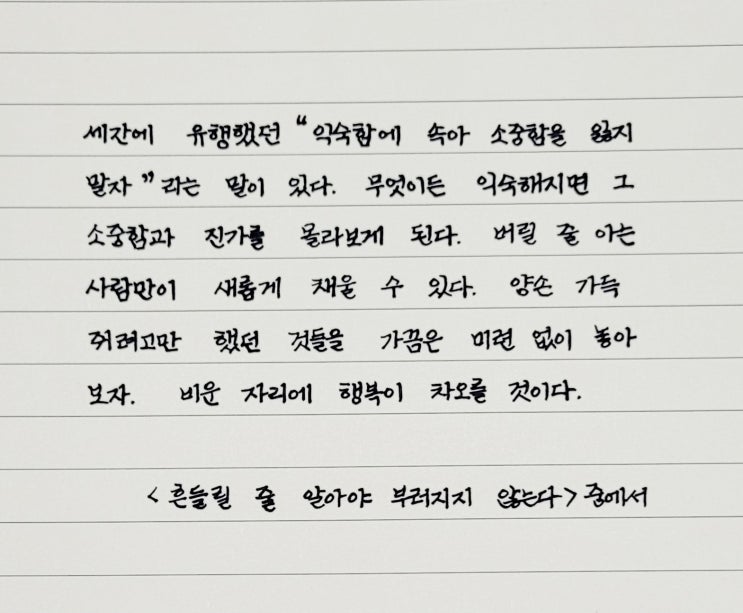 세간에 유행했던 “익숙함에 속아 소중함을 잃지
말자”라는 말이 있다. 무엇이든 익숙해지면 그
소중함과 진가를 몰라보게 된다. 버릴 줄 아는
사람만이 새롭게 채울 수 있다. 양손 가득
쥐려고만 했던 것들을 가끔은 미련 없이 놓아
보자. 비운 자리에 행복이 차오를 것이다.
<흔들릴 줄 알아야 부러지지 않는다> 중에서